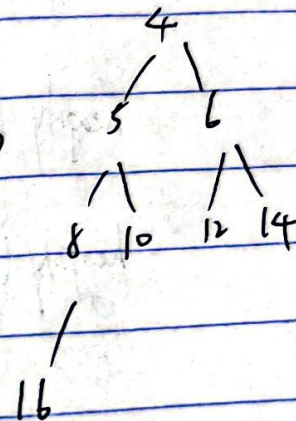 4
5 6
8 10 12 14
16